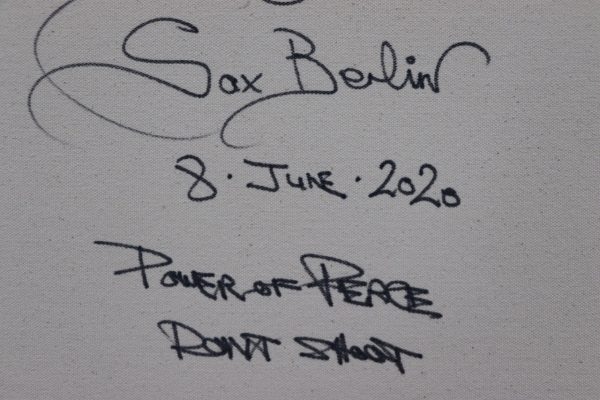 Sax Berlin
8 · June · 2020
POWER OF PEACE
DON'T SHOOT